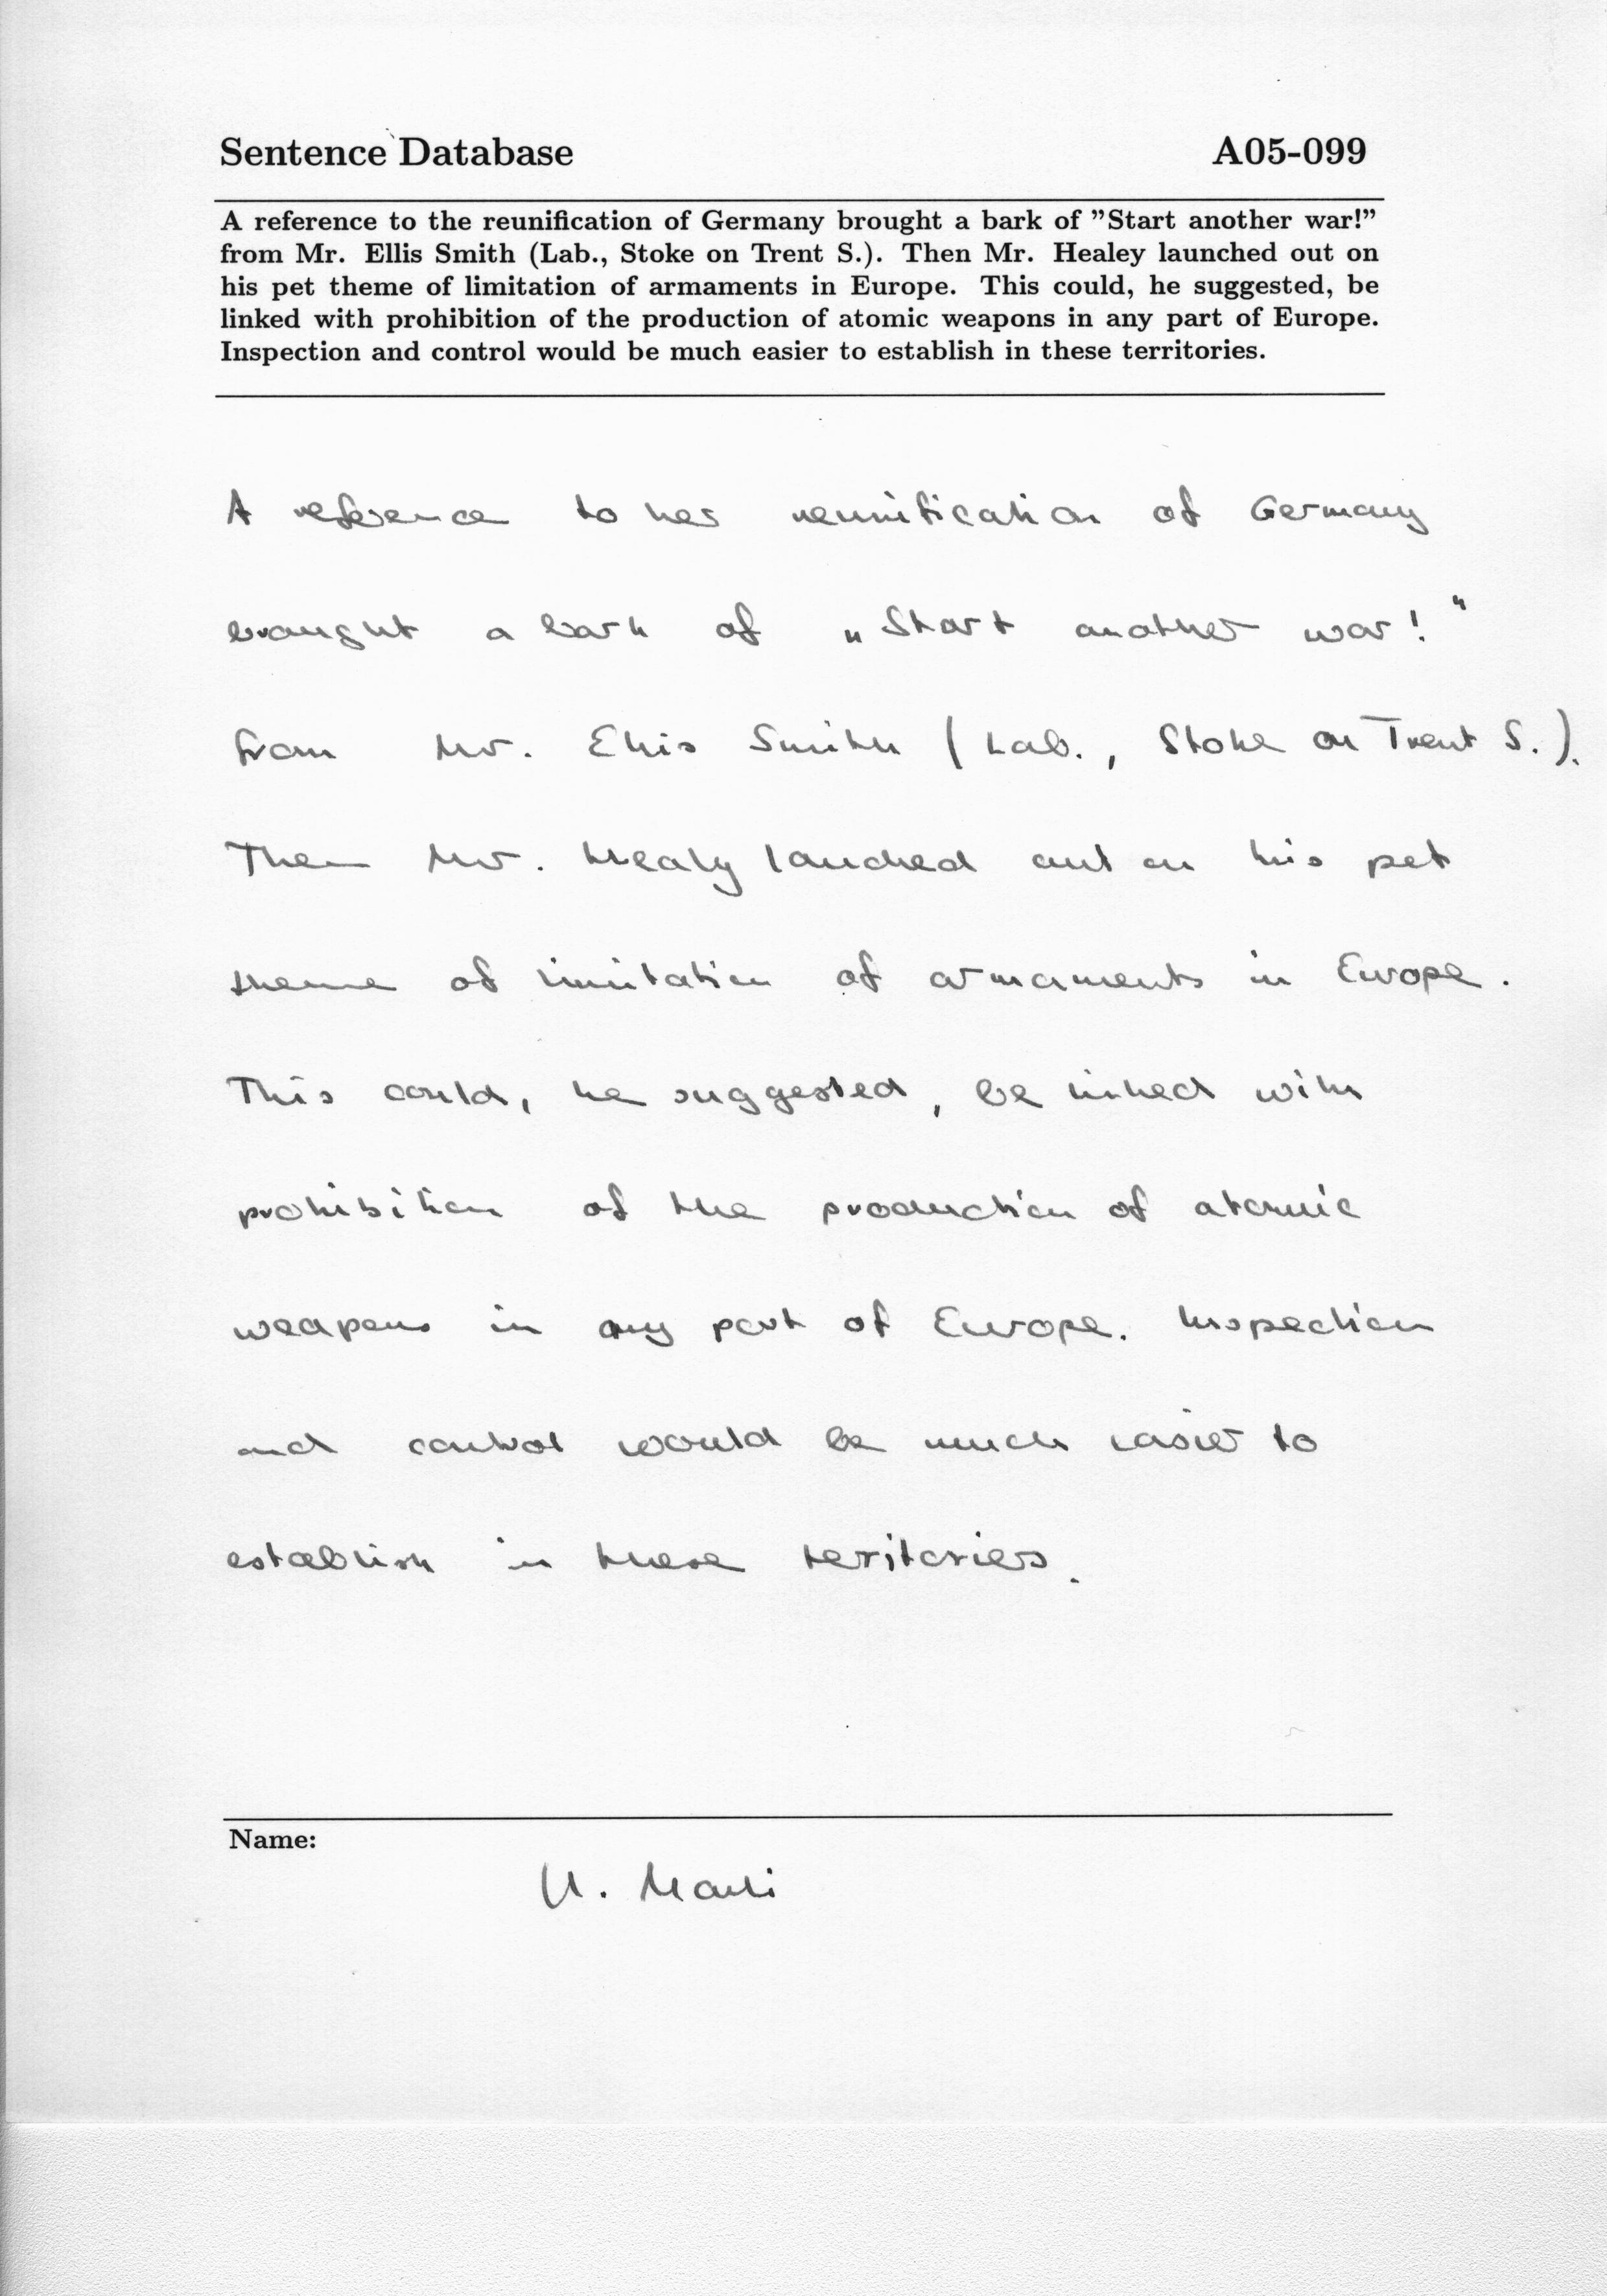 Sentence Database A05-099
A reference to the reunification of Germany brought a bark of ”Start another war!”
from Mr. Ellis Smith (Lab., Stoke on Trent S.). Then Mr. Healey launched out on
his pet theme of limitation of armaments in Europe. This could, he suggested, be
linked with prohibition of the production of atomic weapons in any part of Europe.
Inspection and control would be much easier to establish in these territories.
A reference to her reunification of Germany
brought a bark of „Start another war!“
from Mr. Ellis Smith (Lab., Stoke on Trent S.).
Then Mr. Healy lauched out on his pet
theme of limitation of armaments in Europe.
This could, he suggested, be linked with
prohibition of the production of atomic
weapons in any part of Europe. Inspection
and control would be much easier to
establish in these teritories.
Name:
U. Marti